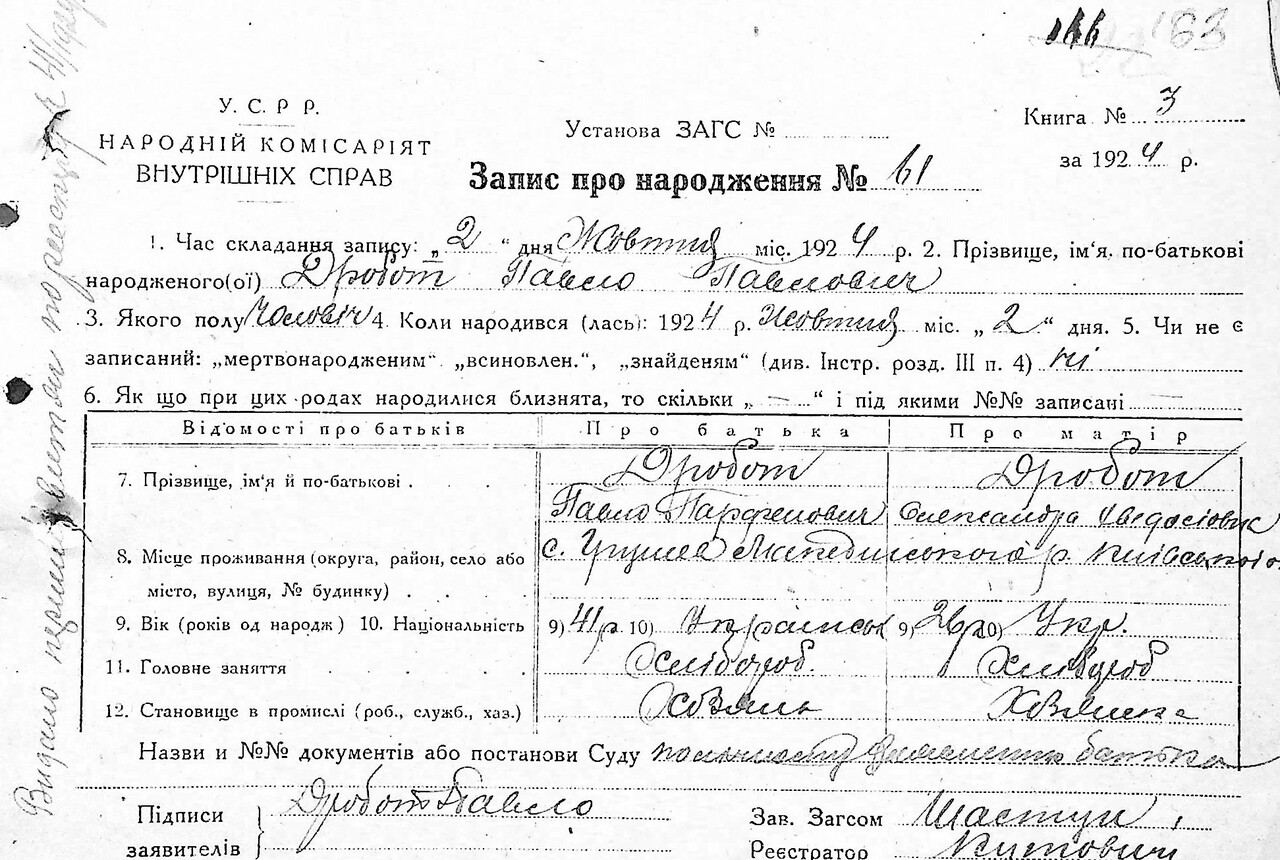 166 183
У. С. Р. Р.
НАРОДНІЙ КОМІСАРІЯТ
ВНУТРІШНІХ СПРАВ
Установа ЗАГС №
Книга № 3
за 1924 р.
Запис про народження № 61
1. Час складання запису: „2“ дня Жовтня міс. 1924 р. 2. Прізвище, ім'я. по-батькові
народженого(ої) Дробот Павло Павлович
3. Якого полу Чоловіч 4. Коли народився (лась): 1924 р. Жовтня міс. „2“ дня. 5. Чи не є
записаний: „мертвонародженим“ „всиновлен.“, „знайденям“ (див. Інстр. розд. III п. 4) ні
6. Як що при цих родах народилися близнята, то скільки „ — “ і під якими №№ записані —
Відомості про батьків Про батька Про матір
7. Прізвище, ім'я й по-батькові Дробот Дробот
Павло Парфенович Олександра
8. Місце проживання (округа, район, село або с.
місто, вулиця, № будинку)
9. Вік (років од народж) 10. Національність 9) 41 р. 10) Українськ 9) 26 р. 10) Укр.
11. Головне заняття Хлібороб. Хлібороб
12. Становище в промислі (роб., служб., хаз.) Хазяїн
Назви и №№ документів або постанови Суду батька
Підписи Дробот Павло Зав. Загсом Шастун
заявителів Реєстратор
Видано